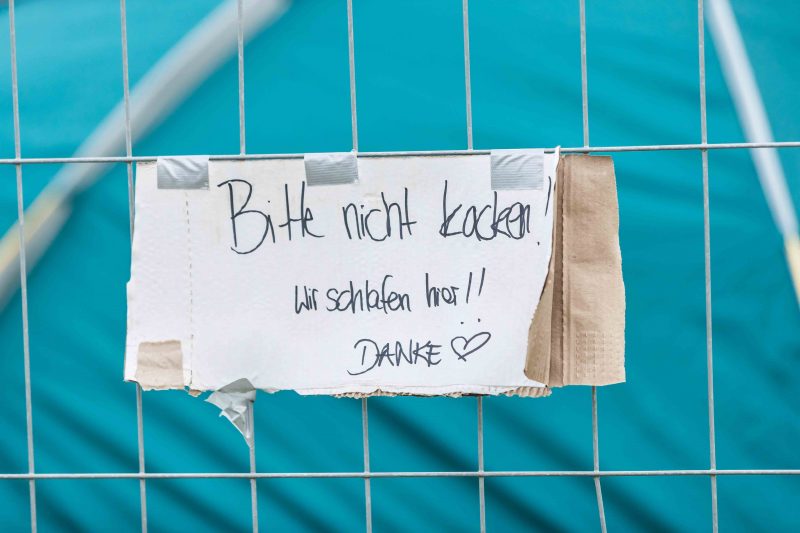 Bitte nicht kacken!
Wir schlafen hier!!
DANKE ♡